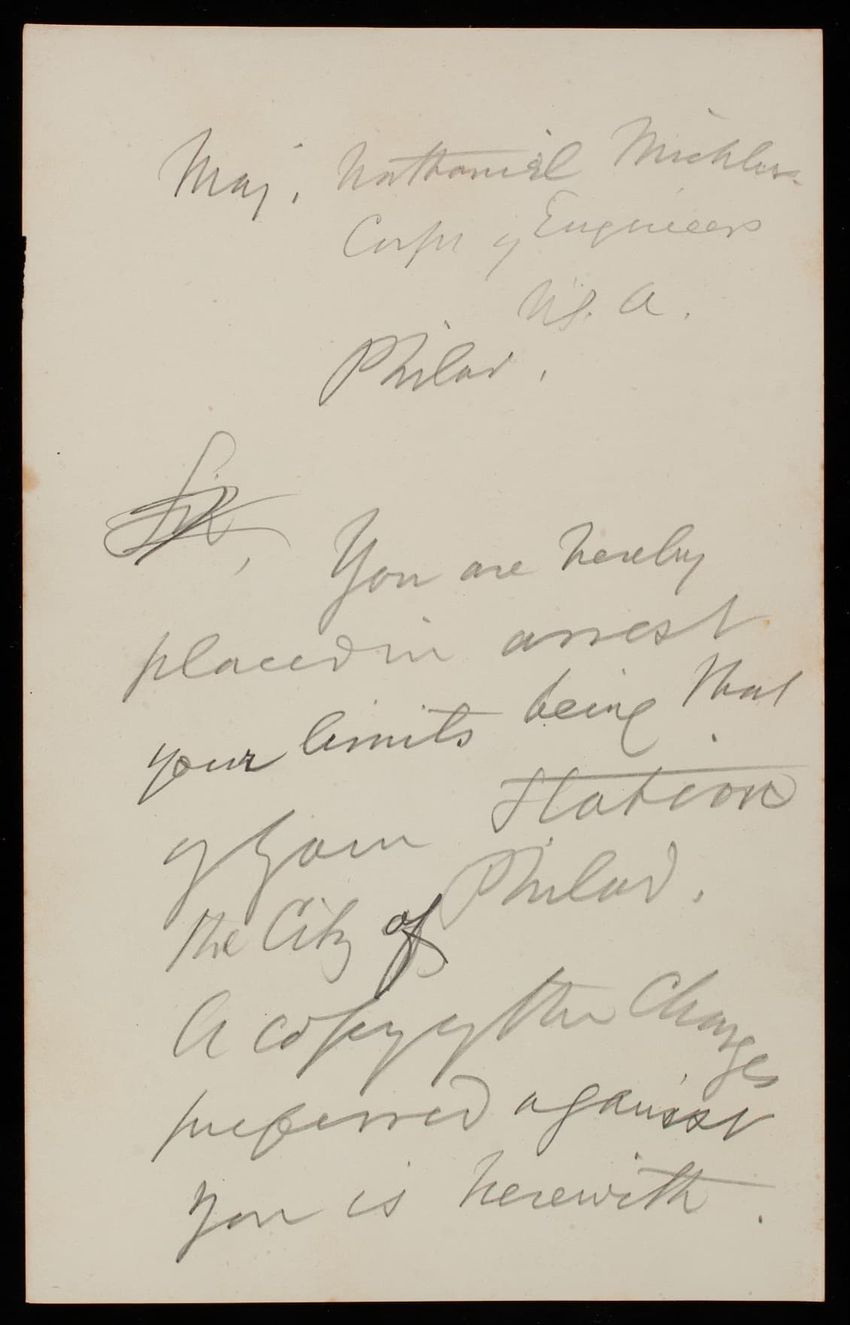 Maj. Nathaniel Michler
Corps of Engineers
U.S. A.
Philad.
Sir,
You are hereby
placed in arrest
your limits being that
of your Station
the City of Philad.
A copy of the Charges
preferred against
you is herewith.